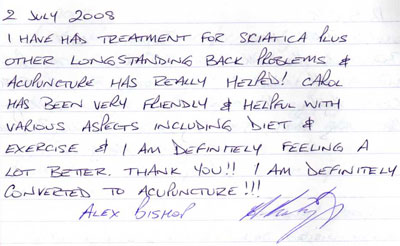 2 JULY 2008
I HAVE HAD TREATMENT FOR SCIATICA PLUS
OTHER LONGSTANDING BACK PROBLEMS &
ACUPUNCTURE HAS REALLY HELPED! CAROL
HAS BEEN VERY FRIENDLY & HELPFUL WITH
VARIOUS ASPECTS INCLUDING DIET &
EXERCISE & I AM DEFINITELY FEELING A
LOT BETTER. THANK YOU!! I AM DEFINITELY
CONVERTED TO ACUPUNCTURE!!!
ALEX BISHOP